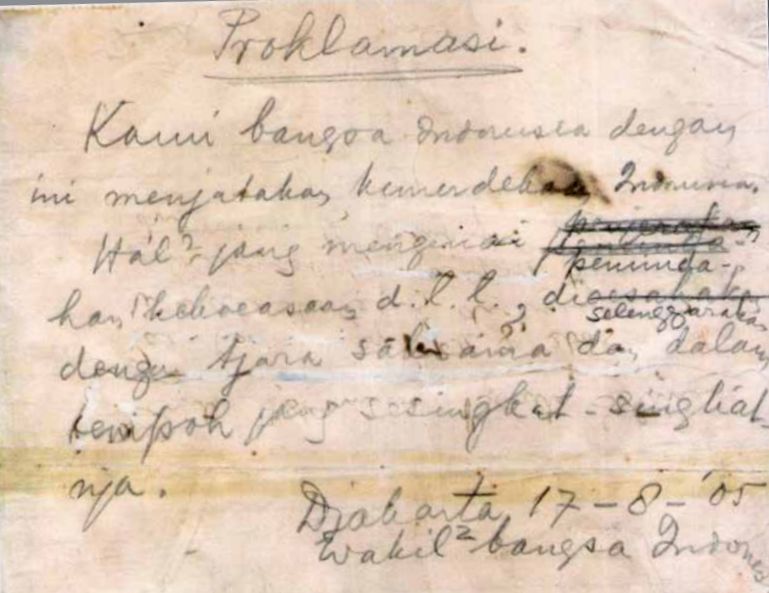 Proklamasi.
Kami bangsa Indonesia dengan
ini menjatakan kemerdekaan Indonesia.
Hal² jang mengenai
penjerahan
peminda-
han kekoeasaan d.l.l., dioesahakan
selenggarakan
dengan tjara saksama dan dalam
tempoh jang sesingkat-singkat-
nja.
Djakarta, 17-8-'05
Wakil² bangsa Indones